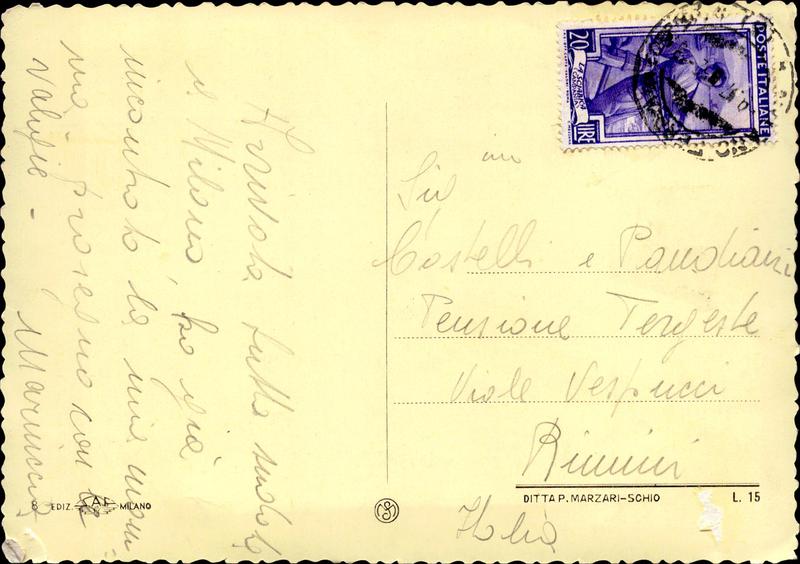 Arrivata tutta sudata
a Milano, ho già
incontrato la mia mam-
ma proseguo con le
valigie -
Mariuccia
Sig
Castelli e Pandiani
Pensione Tergeste
Viale Vespucci
Rimini
Italia
DITTA P. MARZARI-SCHIO L. 15
8 EDIZ. AF MILANO
POSTE ITALIANE
20
LIRE